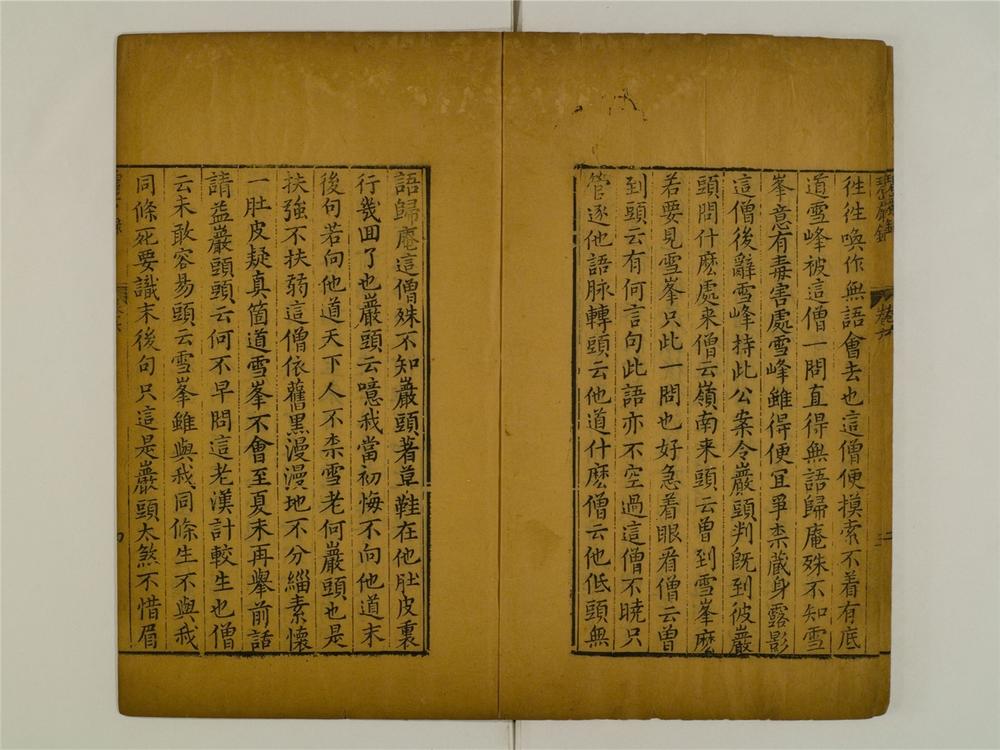 碧巖錄 卷六
徃徃喚作無語會去也這僧便摸索不着有底
道雪峰被這僧一問直得無語歸庵殊不知雪
峯意有毒害處雪峰雖得便宜爭柰藏身露影
這僧後辭雪峰持此公案令巖頭判旣到彼巖
頭問什麽處来僧云嶺南来頭云曾到雪峯麽
若要見雪峯只此一問也好急着眼看僧云曾
到頭云有何言句此語亦不空過這僧不曉只
管逐他語脉轉頭云他道什麽僧云他低頭無
語歸庵這僧殊不知巖頭著草鞋在他肚皮裏
行幾囬了也巖頭云噫我當初悔不向他道末
後句若向他道天下人不柰雪老何巖頭也是
扶強不扶弱這僧依舊黑漫漫地不分緇素懷
一肚皮疑真箇道雪峯不會至夏末再舉前話
請益巖頭頭云何不早問這老漢計較生也僧
云未敢容易頭云雪峯雖與我同條生不與我
同條死要識末後句只這是巖頭太煞不惜眉